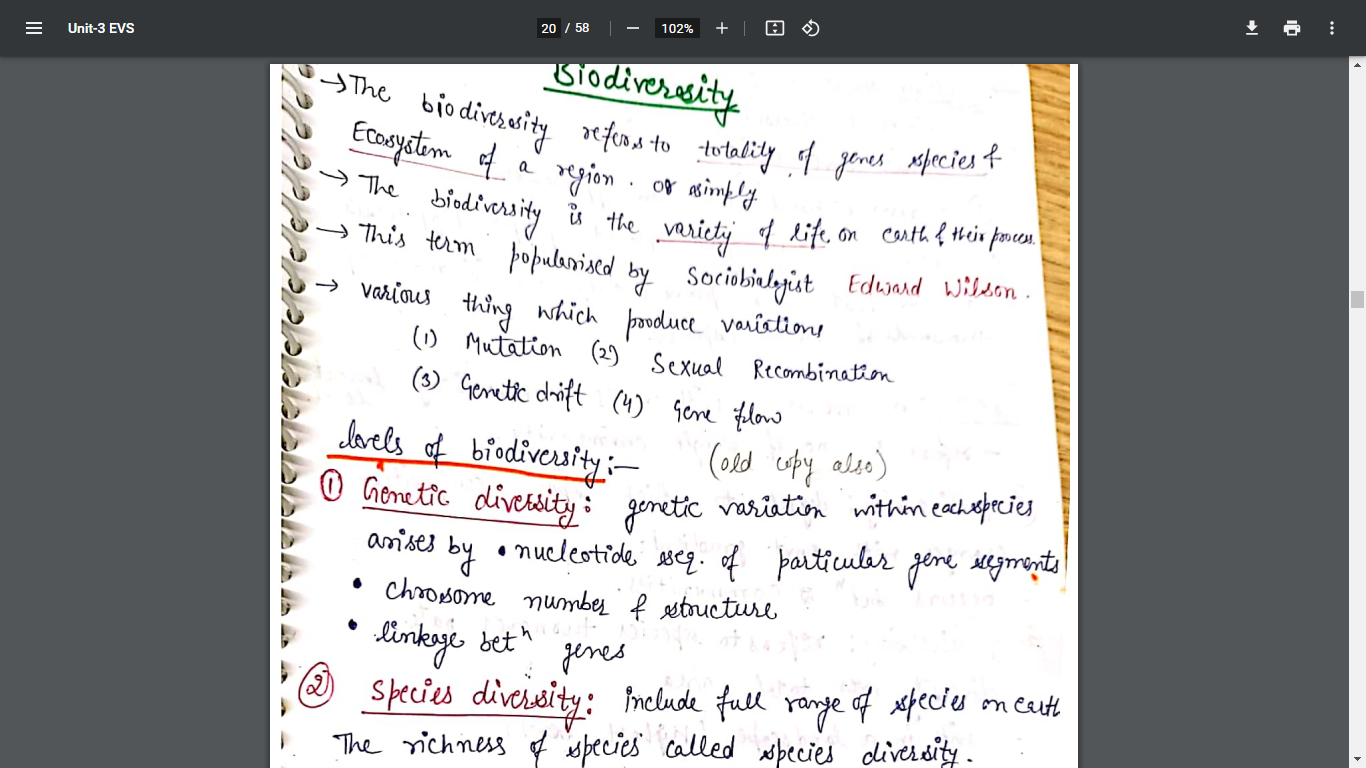 Unit-3 EVS
20 / 58
102%
Biodiversity
→ The biodiversity refers to totality of genes species &
Ecosystem of a region. or simply
→ The biodiversity is the variety of life on earth & their process.
→ This term popularised by Sociobialogist Edward Wilson.
→ various thing which produce variations
(1) Mutation (2) Sexual Recombination
(3) Genetic drift (4) Gene flow
levels of biodiversity:— (old copy also)
① Genetic diversity: genetic variation within each species
arises by • nucleotide seq. of particular gene segments
• chrosome number & structure
• linkage betⁿ genes
② Species diversity: include full range of species on earth
The richness of species called species diversity.